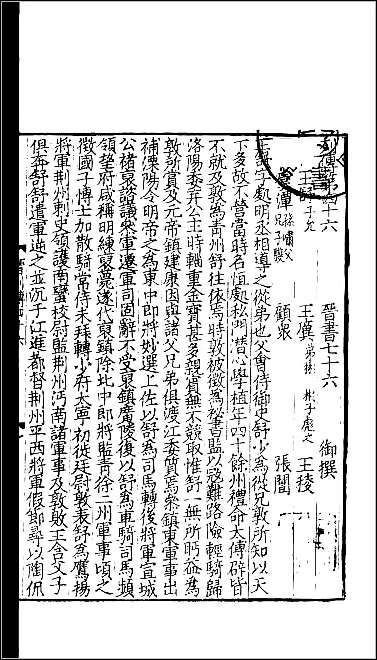 列傳第四十六 晉書七十六 御撰
王舒 子允之 王廙 弟彬 彬子彪之 王棱
虞潭 孫嘯父 兄子𩦎 顧衆 張闓
王舒字處明丞相導之從弟也父會侍御史舒少為從兄敦所知以天
下多故不營當時名恒處私門潛心學植年四十餘州禮命太傅辟皆
不就及敦為青州舒往依焉時敦被徵為秘書監以寇難路險輕騎歸
洛陽委棄公主時輜重金寶甚多親賓無不競取惟舒一無所眄益為
敦所賞及元帝鎮建康因與諸父兄弟俱渡江委質焉叅鎮東軍事出
補溧陽令明帝之為東中郎將妙選上佐以舒為司馬轉後將軍宣城
公褚裒諮議叅軍遷軍司固辭不受裒鎮廣陵復以舒為車騎司馬頻
領望府咸稱明練裒薨遂代裒鎮除北中郎將監青徐二州軍事頃之
徵國子博士加散騎常侍未拜轉少府太寧初徙廷尉敦表舒為鷹揚
將軍荊州刺史領護南蠻校尉監荊州沔南諸軍事及敦敗王含父子
俱奔舒舒遣軍逆之並沉于江進都督荊州平西將軍假節尋以陶侃